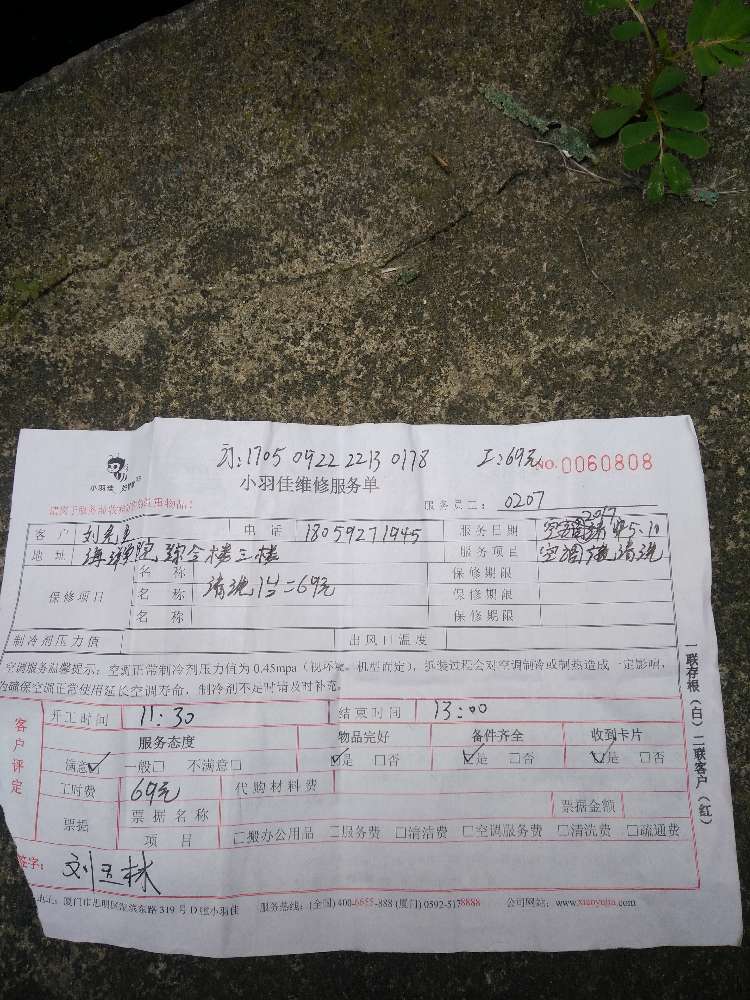 订:1705 0922 2213 0178 工:69元 NO. 0060808
小羽佳
小羽佳维修服务单
服务员工: 0207
客户 刘先生 电话 18059271945 服务日期 2017 5-10
地址 综合楼三楼 服务项目 空调 清洗
保修项目 名称 清洗1台=69元 保修期限
名称 保修期限
名称 保修期限
制冷剂压力值 出风口温度
空调服务温馨提示:空调正常制冷剂压力值为0.45mpa(视环境、机型而定),拆装过程会对空调制冷或制热造成一定影响,
为确保空调正常使用延长空调寿命,制冷剂不足时请及时补充。
客户评定 开工时间 11:30 结束时间 13:00
服务态度 物品完好 备件齐全 收到卡片
满意☑ 一般□ 不满意□ ☑是 □否 ☑是 □否 ☑是 □否
工时费 69元 代购材料费
票据 票据名称 票据金额
项目 □搬办公用品 □服务费 □清洁费 □空调服务费 □清洗费 □疏通费
签字: 刘玉林
地址:厦门市思明区湖滨东路319号D 小羽佳 服务热线:(全国)400-6655-888 (厦门)0592-5178888 公司网站:www.xiaoyujia.com
一联存根(白)二联客户(红)